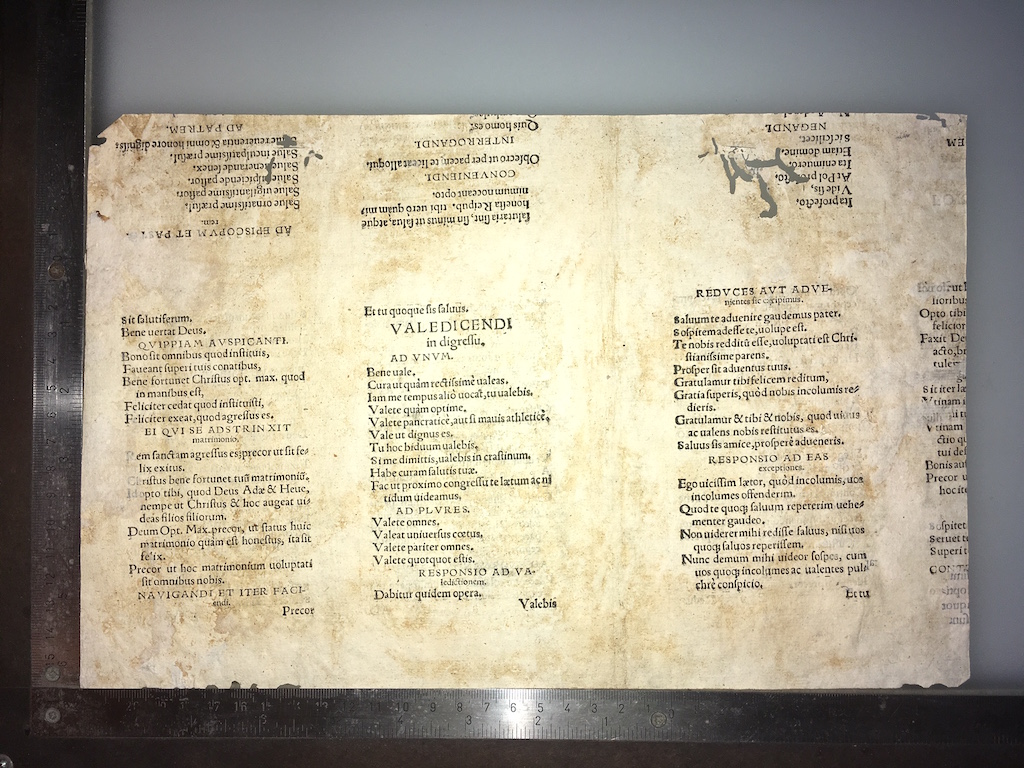 Sit salutiferum.
Bene uertat Deus.
QVIPPIAM AVSPICANTI.
Bono sit omnibus quod instituis,
Faueant superi tuis conatibus,
Bene fortunet Christus opt. max. quod
in manibus est,
Feliciter cedat quod instituisti,
Feliciter exeat, quod agressus es.
EI QVI SE ADSTRINXIT
matrimonio.
Rem sanctam agressus es; precor ut sit fe-
lix exitus.
Christus bene fortunet tuũ matrimoniũ.
Adopto tibi, quod Deus Adæ & Heuæ,
nempe ut Christus & hoc augeat ui-
deas filios filiorum.
Deum Opt. Max. precor, ut status huic
matrimonio quàm est honestus, ita sit
felix.
Precor ut hoc matrimonium uoluptati
sit omnibus nobis.
NAVIGANDI ET ITER FACI-
endi.
Precor
Et tu quoque sis saluus.
VALEDICENDI
in digressu.
AD VNVM.
Bene uale.
Cura ut quàm rectissimè ualeas.
Iam me tempus aliò uocat, tu ualebis.
Valete quàm optime.
Valete pancraticè, aut si mauis athleticè.
Vale ut dignus es.
Tu hoc biduum ualebis.
Si me dimittis, ualebis in crastinum.
Habe curam salutis tuæ.
Fac ut proximo congressu te lætum ac ni
tidum uideamus.
AD PLVRES.
Valete omnes.
Valeat uniuersus cœtus.
Valete pariter omnes.
Valete quotquot estis.
RESPONSIO AD VA-
ledictionem.
Dabitur quidem opera.
Valebis
REDVCES AVT ADVE-
nientes sic excipimus.
Saluum te aduenire gaudemus pater.
Sospitem adesse te, uolupe est.
Te nobis redditũ esse, uoluptati est Chri-
stianissime parens.
Prosper sit aduentus tuus.
Gratulamur tibi felicem reditum,
Gratia superis, quòd nobis incolumis re-
dieris.
Gratulamur & tibi & nobis, quod uiuus
ac ualens nobis restitutus es.
Saluus sis amice, prosperè adueneris.
RESPONSIO AD EAS
exceptiones.
Ego uicissim lætor, quòd incolumis, uos
incolumes offenderim.
Quod te quoq; saluum repererim uehe-
menter gaudeo.
Non uiderer mihi redisse saluus, nisi uos
quoq; saluos reperissem.
Nunc demum mihi uideor sospes, cum
uos quoq; incolumes ac ualentes pul-
chrè conspicio.
Et tu
Opto tibi
felicior
Faxit De
acto, br
Vtinam
Vtinam
ctio qu
tui de
Bonis au
Precor u
hoc ite
Sospitet
Seruet t
Superi t
CONT
salutaria sint, sin minus ut salua, atque
honesta Reipub. tibi uerò quàm mi-
nimum noceant opto.
CONVENIENDI.
Obsecro ut per pacem te liceat alloqui.
INTERROGANDI.
Quis homo es?
AD EPISCOPVM ET PAST
rem.
Salue ornatissime præsul.
Salue uigilantissime pastor.
Salue suspiciende pastor.
Salue uenerande senex.
Salue inculpatissime præsul.
Salue reuerentia & omni honore dignis
AD PATREM.
Ita profecto.
Vide sis,
At Pol profecto.
Ita enimuero.
Etiam domine.
Sic scilicet.
NEGANDI.
EM